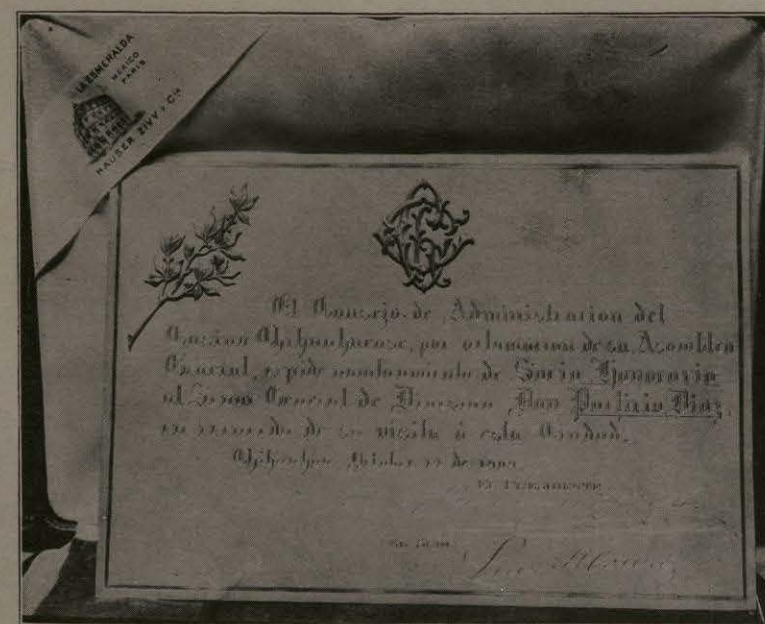 LA ESMERALDA
MEXICO
PARIS
HAUSER ZIVY Y Cia
El Consejo de Administracion del
Casino Chihuahuense, por aclamacion de su Asamblea
General, expide nombramiento de Socio Honorario
al Señor General de Division Don Porfirio Diaz,
en recuerdo de su visita á esta Ciudad.
Chihuahua, Octubre de 1909
El Presidente